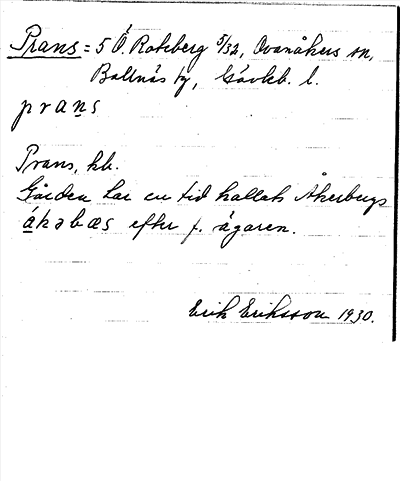 Prans = 5 Ö. Roteberg 5/32, Ovanåkers sn,
Bollnäs tg, Gävleb. l.
prans
Prans, kb.
Gården har en tid kallats Åkerbergs
åkəbæs efter f. ägaren.
Erik Eriksson 1930.